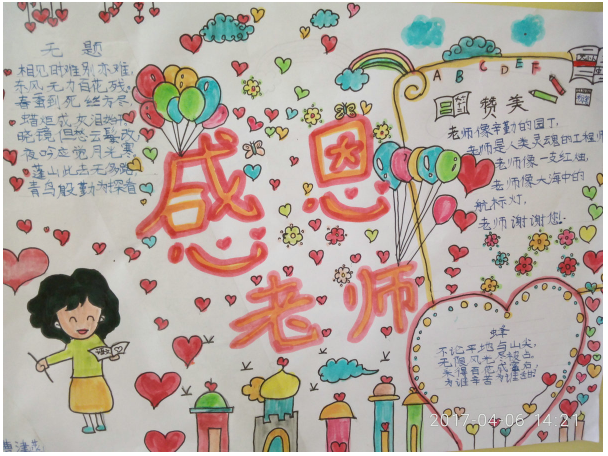 无题
相见时难别亦难,
东风无力百花残。
春蚕到死丝方尽
蜡炬成灰泪始干
晓镜但愁云鬓改
夜吟应觉月光寒
蓬山此去无多路
青鸟殷勤为探看
感恩
老师
A B C D E F
赞美
老师像辛勤的园丁,
老师是人类灵魂的工程师
老师像一支红烛,
老师像大海中的
航标灯.
老师谢谢您.
蜂
不论平地与山尖,
无限风光尽被占
采得百花成蜜后,
为谁辛苦为谁甜
2017-04-06 14:21